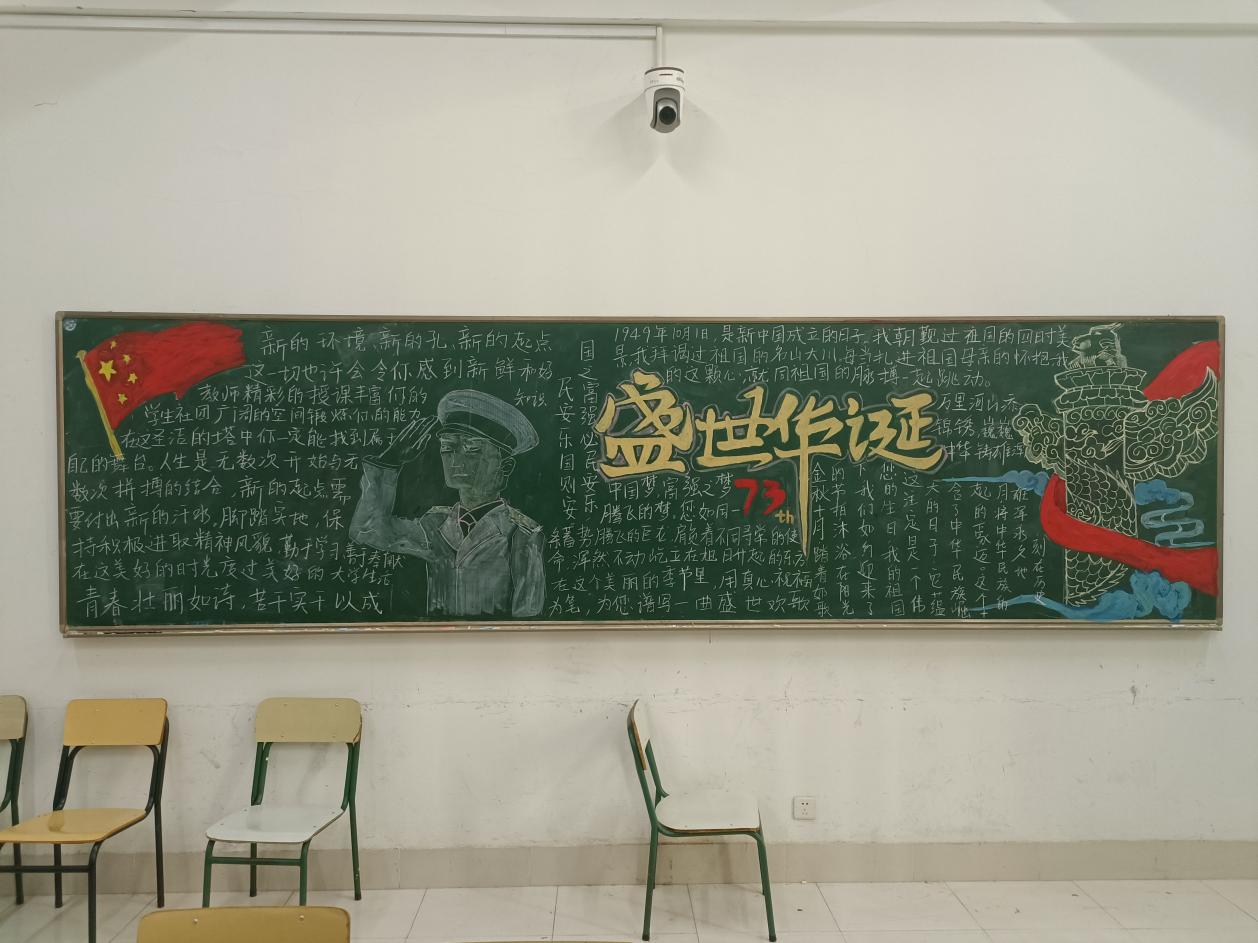 新的环境、新的孔、新的起点
这一切也许会令你感到新鲜和好
教师精彩的授课丰富你的
知识
学生社团广阔的空间锻炼你的能力
在这圣洁的塔中你一定能找到属于
自己的舞台。人生是无数次开始与无
数次拼搏的结合，新的起点需
要付出新的汗水，脚踏实地，保
持积极进取精神风貌，勤于学习善于奉献
在这美好的时光度过美好的大学生活
青春壮丽如诗，苦干实干以成
国之富强必
民安乐国则安
民安乐
1949年10月1日，是新中国成立的日子。我朝觐过祖国的
是我拜谒过祖国的名山大川，每当扎进祖国母亲的怀抱我
的这颗心，就同祖国的脉搏一起跳动。
盛世华诞
73th
中国梦，富强之梦
腾飞的梦，您如同一
条蓄势腾飞的巨龙，肩负着不同寻常的使
命，浑然不动屹立在旭日升起的东方
在这个美丽的季节里，用真心祝福
为笔，为您谱写一曲盛世欢歌
金秋十月踏着如歌
的节拍沐浴在阳光
下我们如约迎来了
您的生日我的祖国
这注定是一个伟
大的日子它蕴
含了中华民族
万里河山
锦绣，巍巍
中华